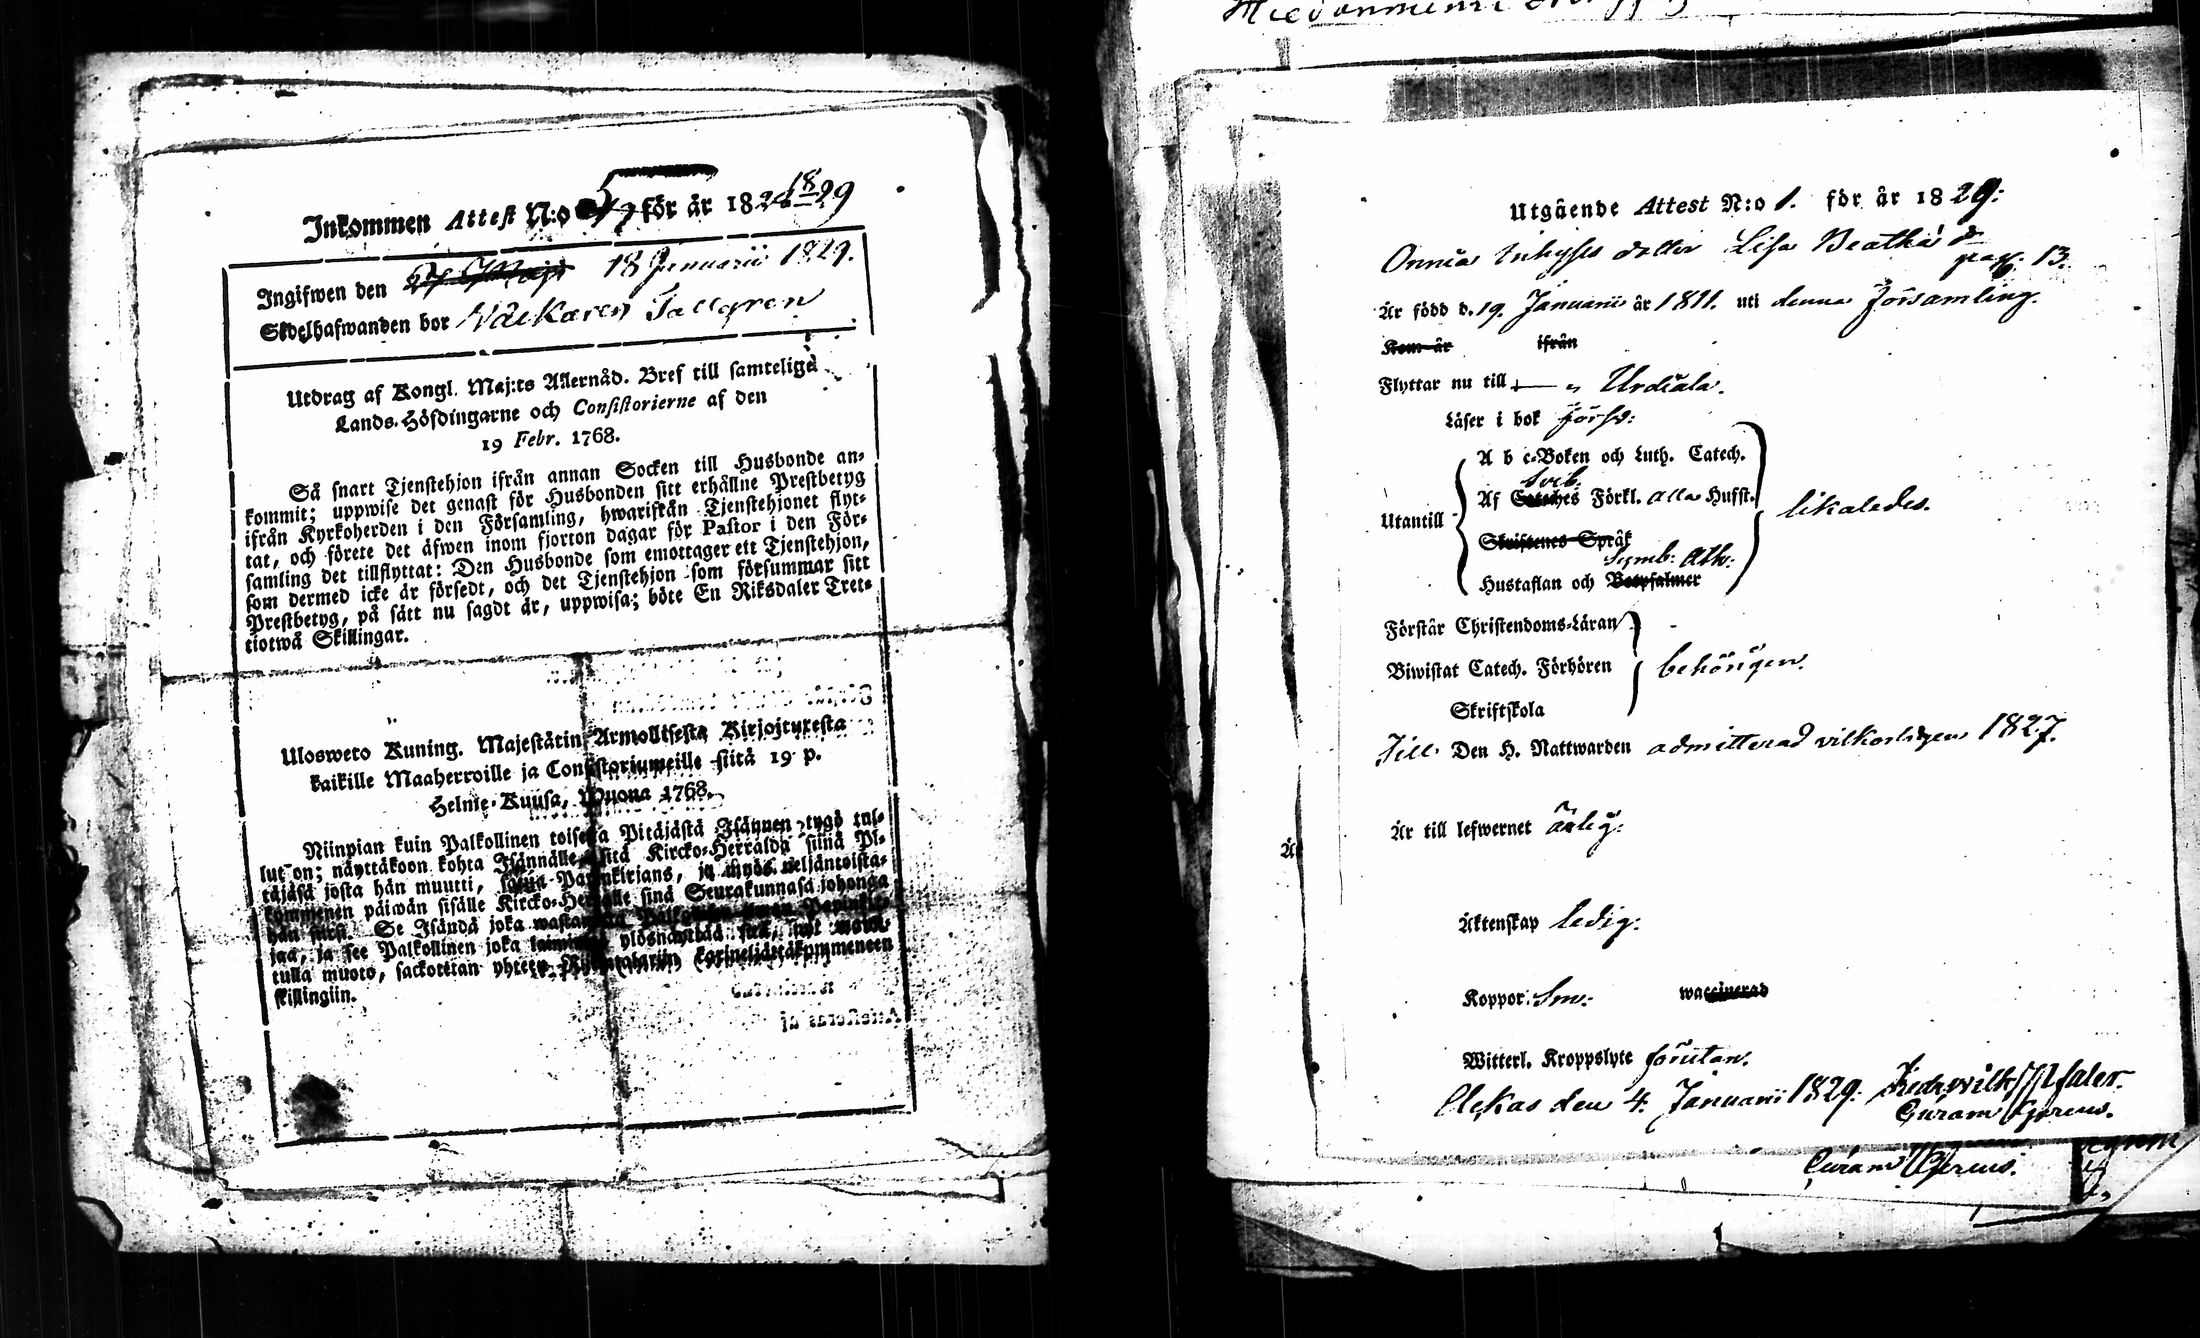 Inkommen Attest N:o 5 för år 1829
Ingifwen den 18 Januarii 1829.
Skdelhafwanden bor Tallgren
Utdrag af Kongl. Maj:ts Allernåd. Bref till samtelige
Lands-Höfdingarne och Consistorierne af den
19 Febr. 1768.
Så snart Tjenstehjon ifrån annan Socken till Husbonde an-
kommit; uppwise det genast för Husbonden sitt erhållne Prestbetyg
ifrån Kyrkoherden i den Församling, hwarifrån Tjenstehjonet flyt-
tat, och förete det äfwen inom fjorton dagar för Pastor i den För-
samling det tillflyttat: Den Husbonde som emottager ett Tjenstehjon,
som dermed icke är försedt, och det Tjenstehjon som försummar sitt
Prestbetyg, på sätt nu sagdt är, uppwisa; böte En Riksdaler Tret-
tiotwå Skillingar.
Ulosweto Kuning. Majestätin Armollisesta Kirjoituresta
kaikille Maaherroille ja Consistoriumeille siitä 19 p.
Helme-Kuusa, Wuona 1768.
Niinpian kuin Palkollinen toisesta Pitäjästä Isännen tygö tul-
lut on; näyttäkoon kohta Isännälle sitä Kircko-Herralda siinä Pi-
täjäsä josta hän muutti, Papinkirjans, ja myös neljäntoista-
kymmenen päiwän sisälle Kircko-Herralle sinä Seurakunnasa johonga
hän siirsi. Se Isändä joka
jaa, ja see Palkollinen joka ylösnäyttää
tulla muoto, sackotetan yhteen kolmeljättäkymmeneen
skillingiin.
Utgående Attest N:o 1. för år 1829:
Onnia Inhyses dotter Lisa Beatha
pag: 13.
Är född d. 19. Januarii år 1811. uti denna Församling.
Kom år ifrån
Flyttar nu till Urdiala.
Läser i bok försv:
A b c-Boken och Luth. Catech.
Sveb.
Af Catches Förkl. alla Husst.
Utantill likaledes.
Skriftenes Språk
Symb: Ath:
Hustaflan och Botpsalmer
Förstår Christendoms-Läran
Biwistat Catech. Förhören behörigen.
Skriftskola
Till Den H. Nattwarden admitterad vilkorligen 1827.
Är till lefwernet ärlig:
Äktenskap ledig:
Koppor waccinerad
Witterl. Kroppslyte förutan.
den 4. Januarii 1829.